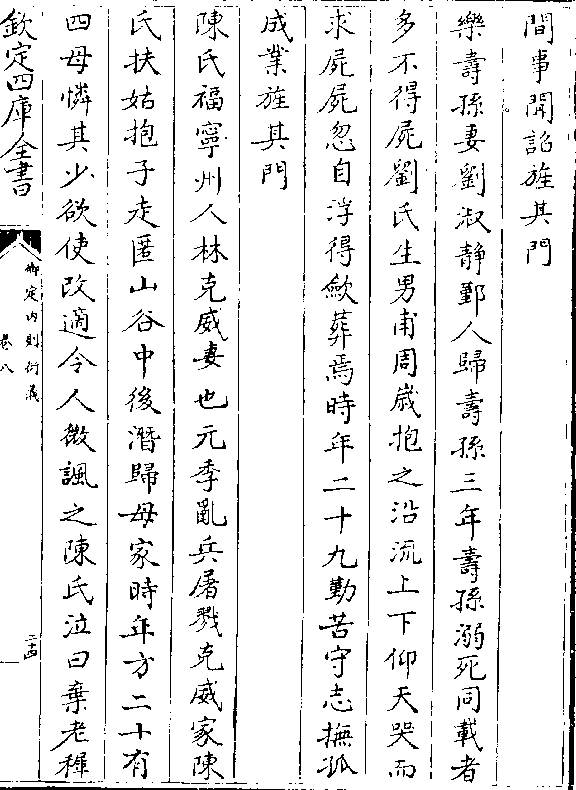 間事聞詔旌其門
樂壽孫妻劉淑靜鄞人歸壽孫三年壽孫溺死同載者
多不得屍劉氏生男甫周歲抱之沿流上下仰天哭而
求屍屍忽自浮得斂葬焉時年二十九勤苦守志撫孤
成業旌其門
陳氏福寧州人林克威妻也元季亂兵屠戮克威家陳
氏扶姑抱子走匿山谷中後潛歸母家時年方二十有
四母憐其少欲使改適令人微諷之陳氏泣曰棄老穉
欽定四庫全書
御定內則衍義
卷八
二十四